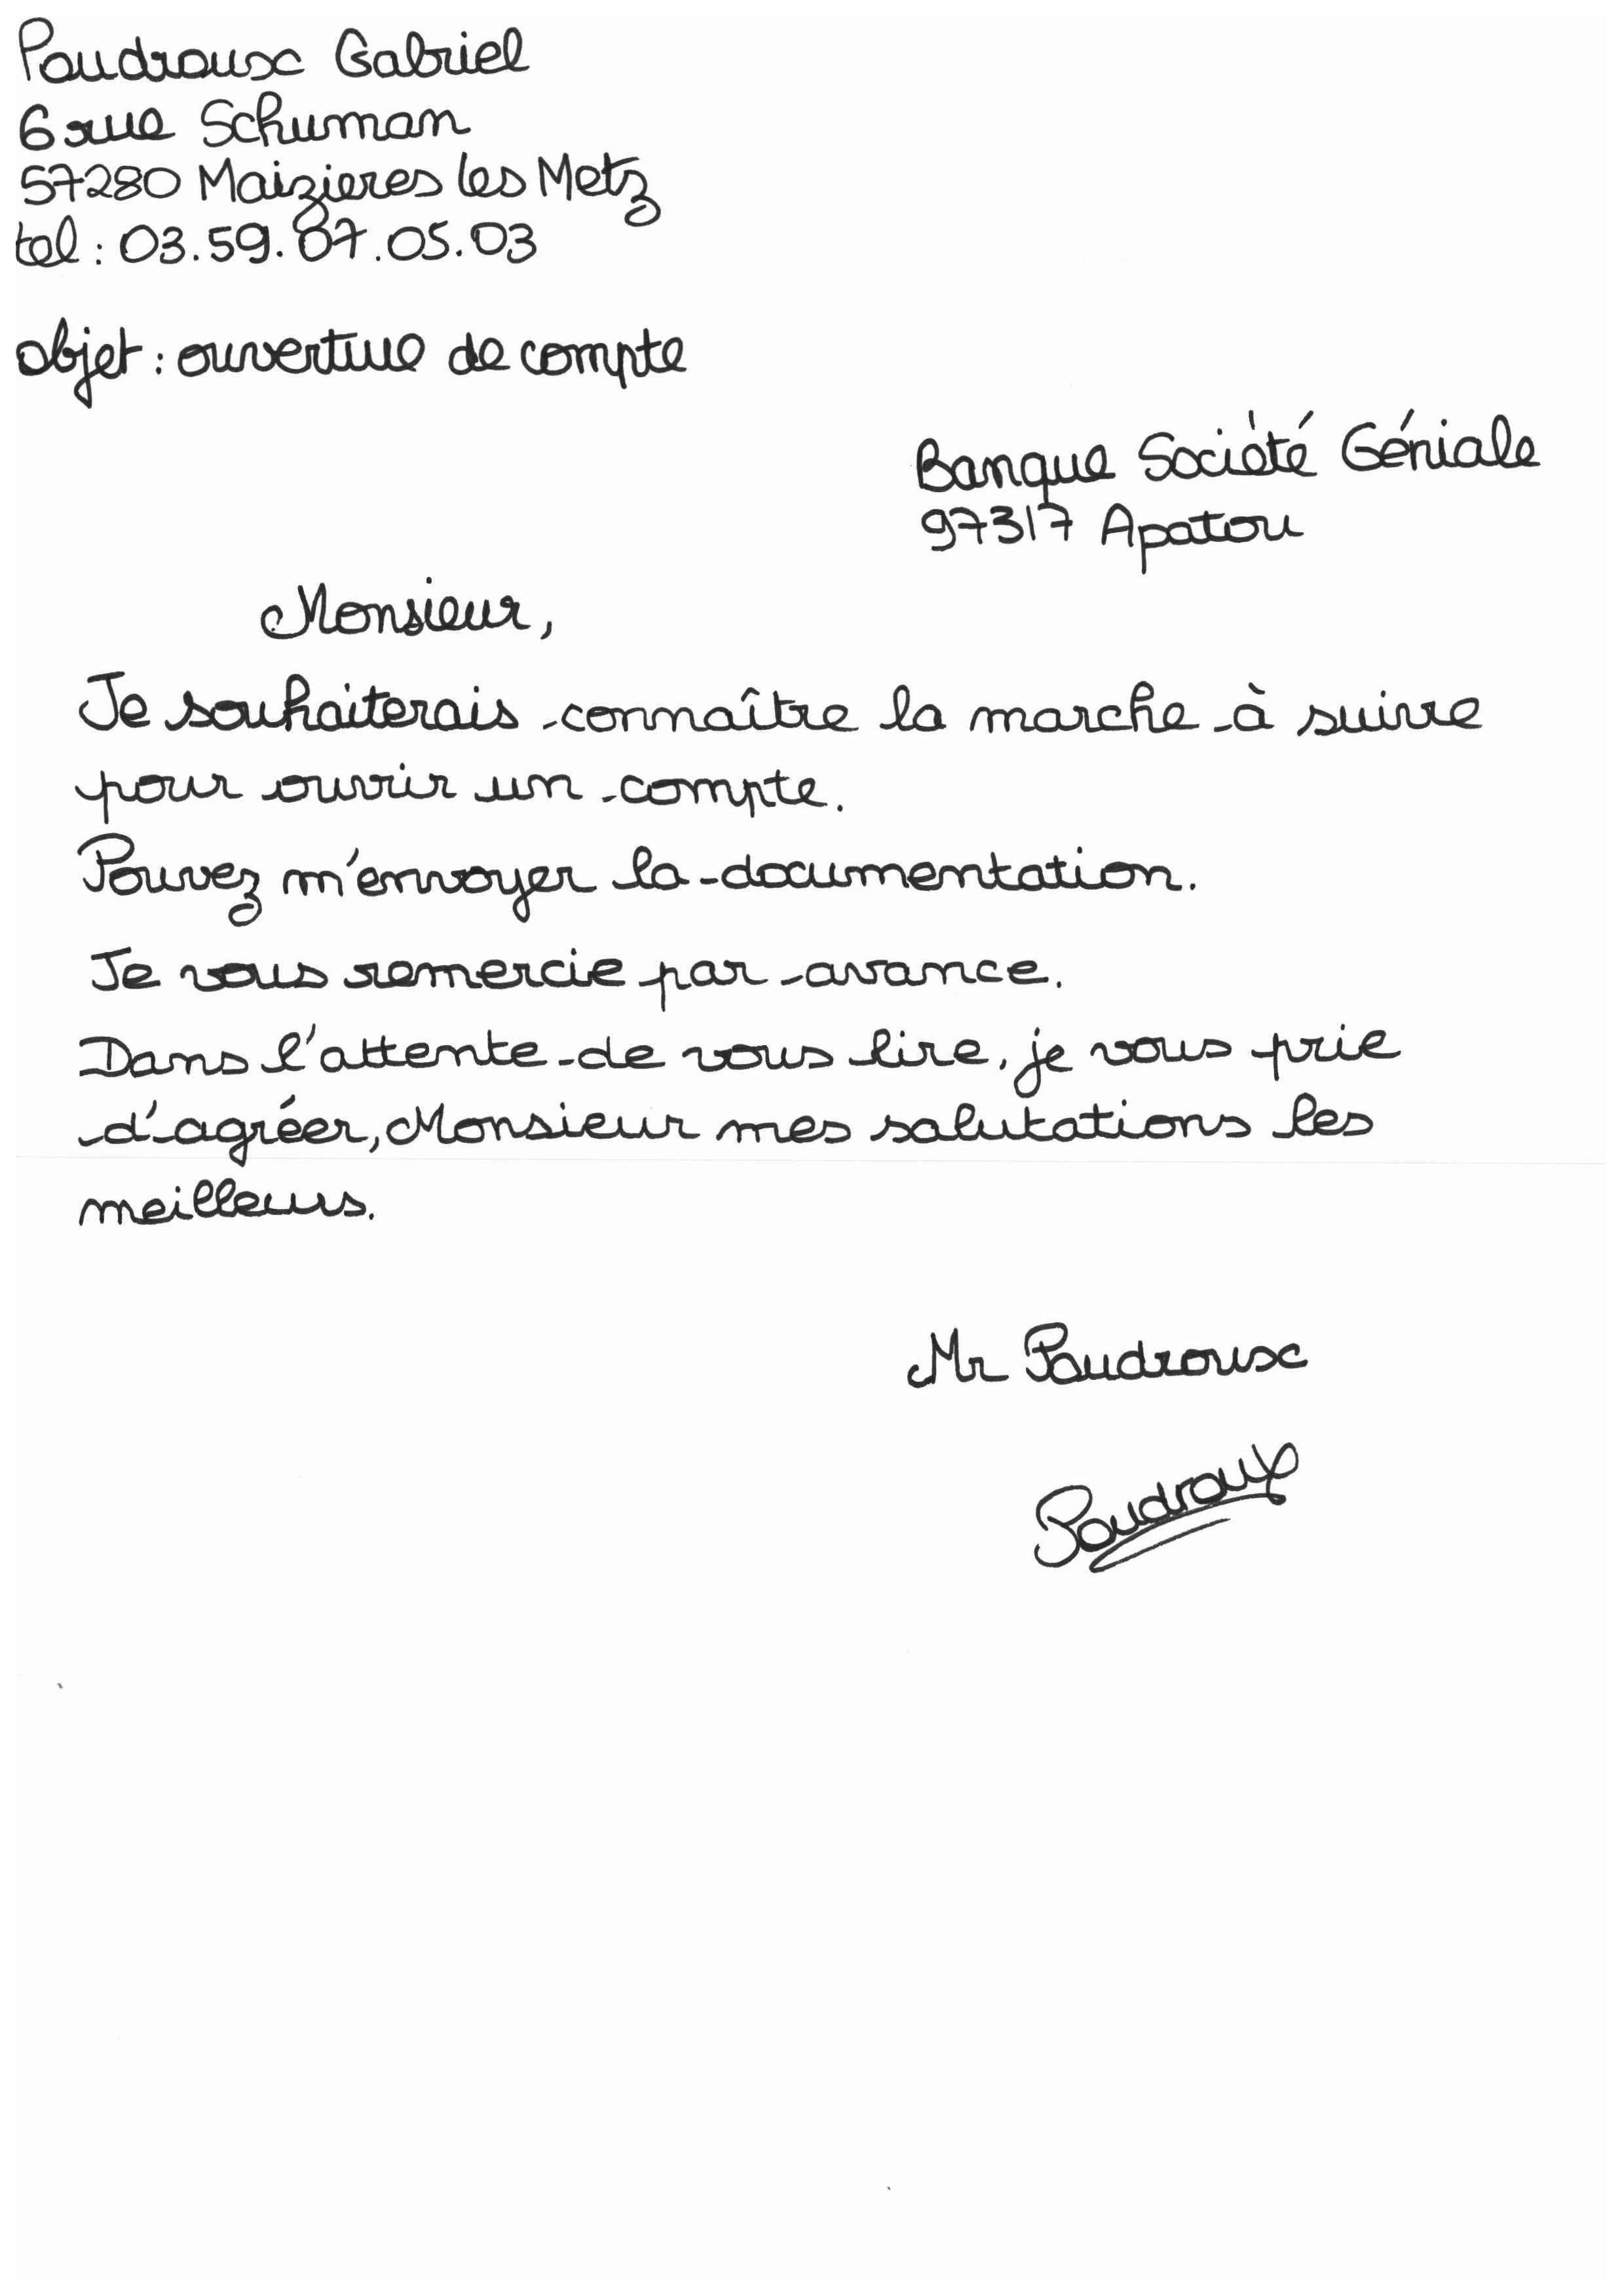 Poudroux Gabriel
6 rue Schuman
57280 Maizieres les Metz
tel : 03.59.87.05.03
objet : ouverture de compte
Banque Société Géniale
97317 Apatou
Monsieur,
Je souhaiterais connaître la marche à suivre
pour ouvrir un compte.
Pouvez m'envoyer la documentation.
Je vous remercie par avance.
Dans l'attente de vous lire, je vous prie
d'agréer, Monsieur mes salutations les
meilleurs.
Mr Poudroux
Poudroux